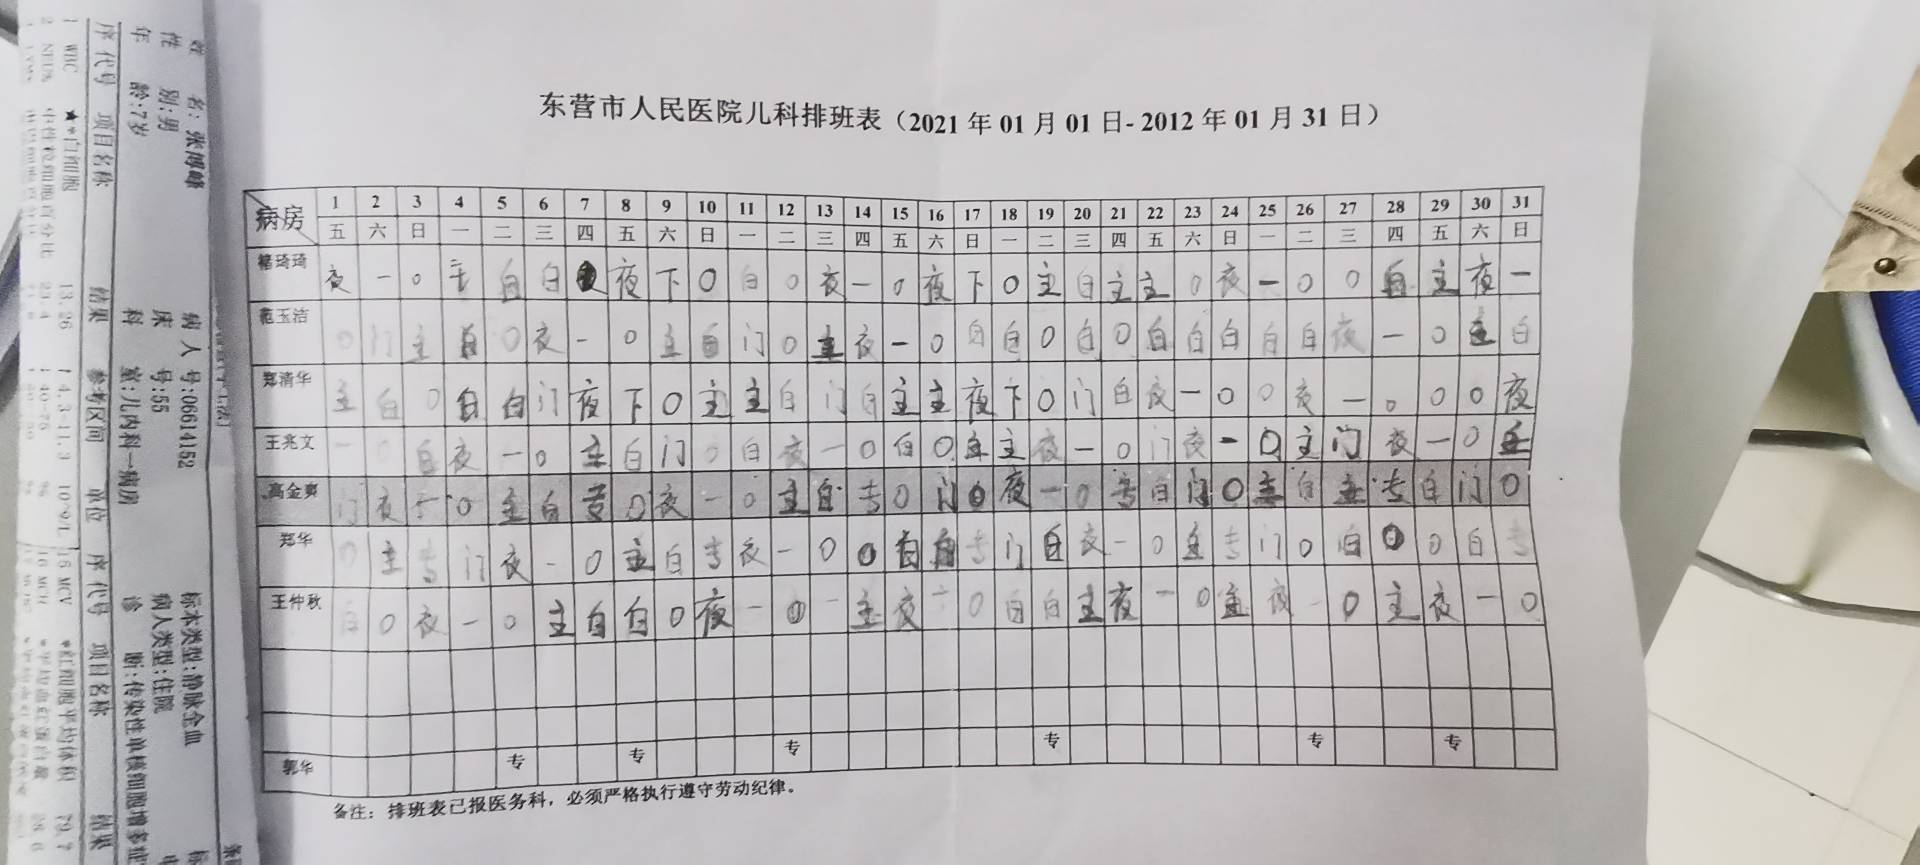 东营市人民医院儿科排班表（2021 年 01 月 01 日- 2012 年 01 月 31 日）
病房 1 2 3 4 5 6 7 8 9 10 11 12 13 14 15 16 17 18 19 20 21 22 23 24 25 26 27 28 29 30 31
五 六 日 一 二 三 四 五 六 日 一 二 三 四 五 六 日 一 二 三 四 五 六 日 一 二 三 四 五 六 日
褚琦琦 夜 一 0 主 白 白 夜 下 0 白 0 夜 一 0 夜 下 0 主 白 主 主 0 夜 一 0 0 白 主 夜 一
范玉洁 0 门 主 白 0 夜 一 0 主 白 门 0 主 夜 一 0 白 白 0 白 0 白 白 白 白 白 夜 一 0 主 白
郑清华 主 白 0 白 白 门 夜 下 0 主 主 白 门 白 主 主 夜 下 0 门 白 夜 一 0 0 夜 一 0 0 0 夜
王兆文 一 0 白 夜 一 0 主 白 门 0 白 夜 一 0 白 0 主 主 夜 一 0 门 夜 一 0 主 门 夜 一 0 主
高金爽 门 夜 一 0 主 白 专 0 夜 一 0 主 白 专 0 门 0 夜 一 0 专 白 门 0 主 白 主 专 白 门 0
郑华 0 主 专 门 夜 一 0 主 白 专 夜 一 0 0 白 白 专 门 白 夜 一 0 主 专 门 0 白 0 0 白 专
王仲秋 白 0 夜 一 0 主 白 白 0 夜 一 0 一 主 夜 一 0 白 白 主 夜 一 0 主 夜 一 0 主 夜 一 0
郭华 专 专 专 专 专 专
备注：排班表已报医务科，必须严格执行遵守劳动纪律。
姓 名:张博峰
性 别:男
年 龄:7岁
病 人 号:06614152
床 号:55
科 室:儿内科一病房
标本类型:静脉全血
病人类型:住院
诊 断:传染性单核细胞增多症
序 代号 项目名称 结果 参考区间 单位 序 代号 项目名称 结果
1 WBC ★*白细胞 13.26 ↑ 4.3-11.3 10^9/L 15 MCV *红细胞平均体积 79.7